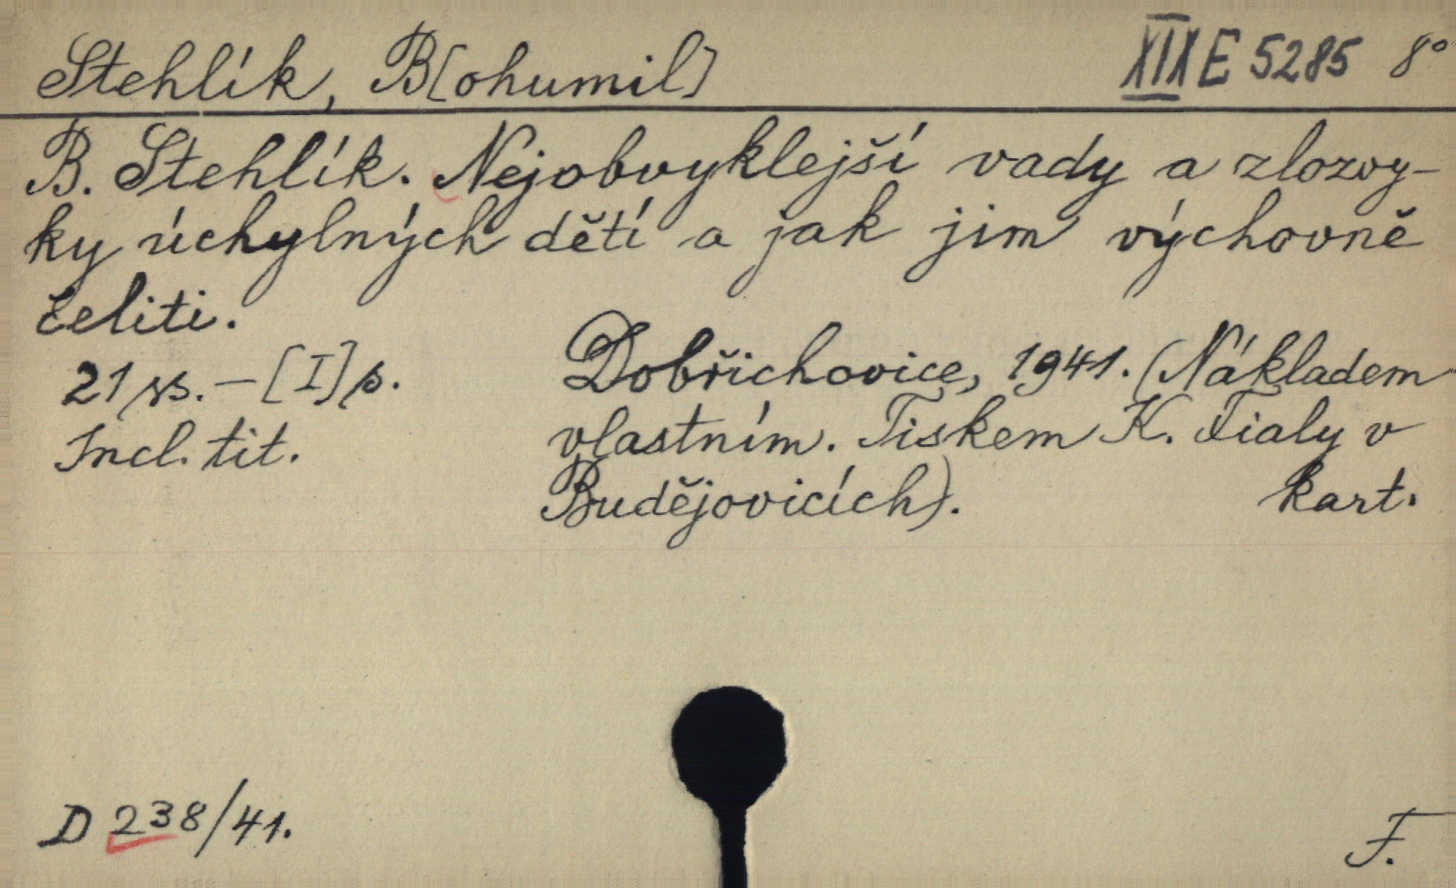 Stehlík, B[ohumil] XIX E 5285 8°
B. Stehlík. Nejobvyklejší vady a zlozvy-
ky úchylných dětí a jak jim výchovně
čeliti.
21 ss. – [I] p. Dobřichovice, 1941. (Nákladem
Incl. tit. vlastním. Tiskem K. Fialy v
Budějovicích). kart.
D 238/41. F.